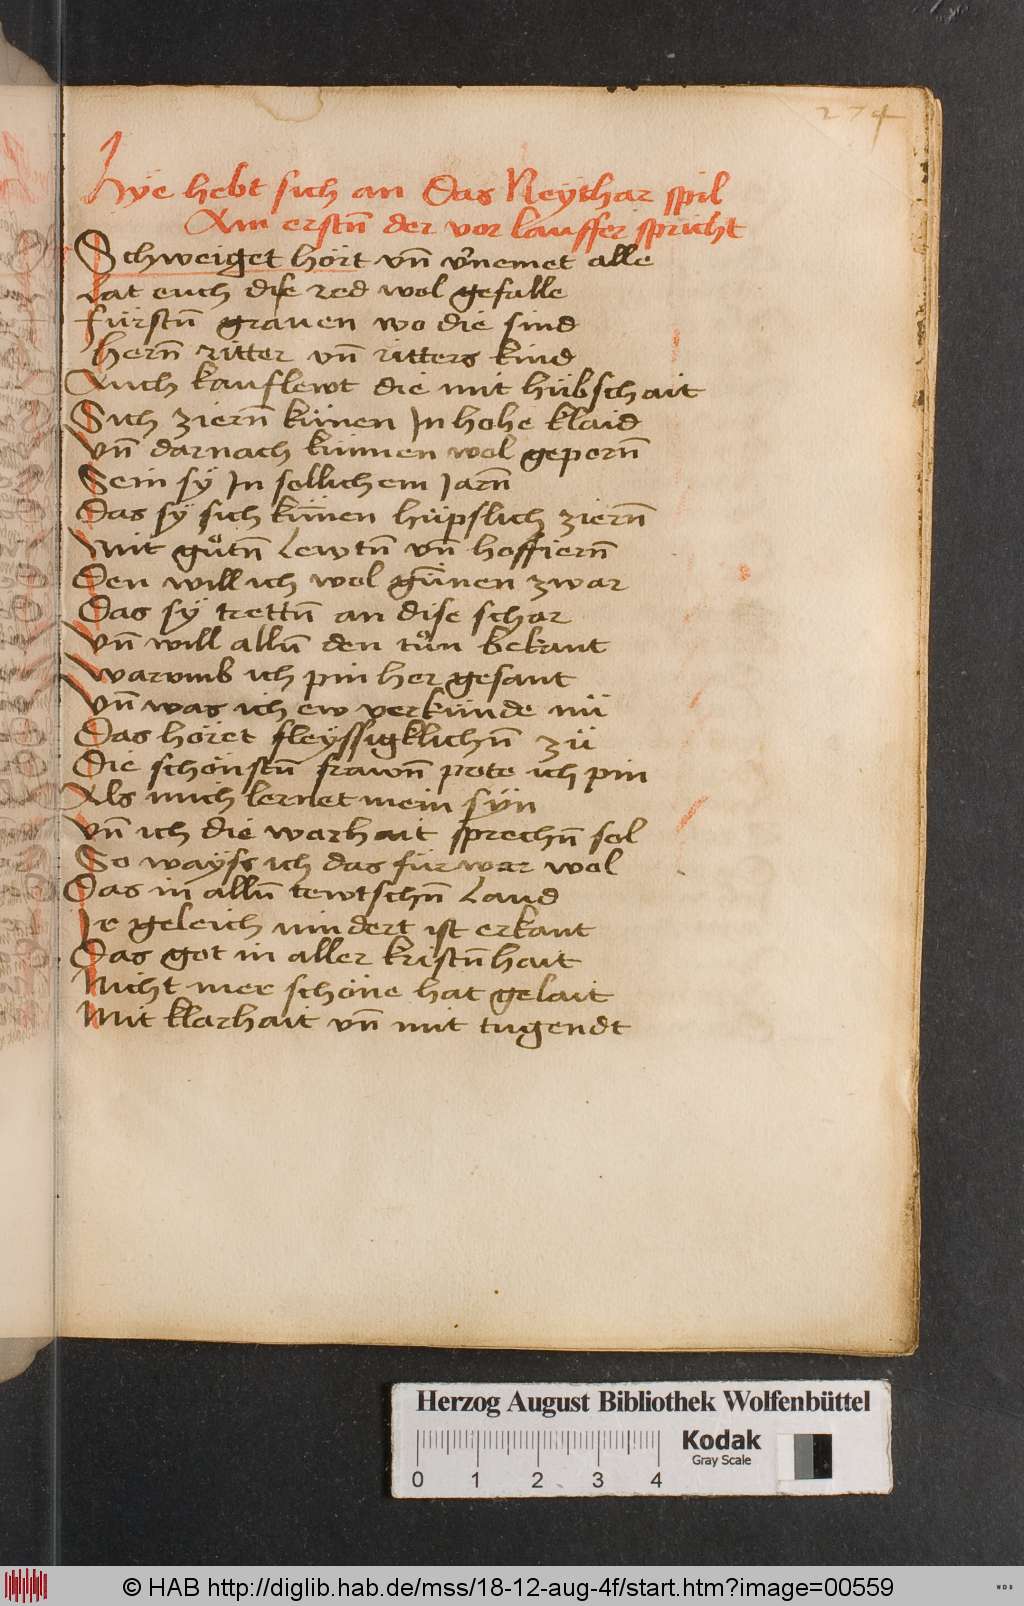 274
Hÿe hebt sich an Das Neÿthar spil
Am erstn̄ der vor lauffer spricht
Schweiget hört vn̄ v̾nemet alle
Lat euch dise red wol gefalle
fürstn̄ grauen wo die sind
hern̄ ritter vn̄ ritters kind
Auch kauflewt die mit hübschait
Sich ziern̄ künen In hohe klaid
Vn̄ darnach künnen wol gepern̄
Sein sÿ In sollichem Jarn̄
Das sÿ sich kün̄en hüpslich ziern̄
Mit gůtn̄ Lewtn̄ vn̄ hoffiern̄
Den will ich wol gün̄en zwar
Das sÿ trettn̄ an dise schar
Vn̄ will alln̄ den tůn bekant
Warvmb ich pin her gesant
Vn̄ was ich ew verkünde nü
Das höret fleÿssigklichn̄ zü
Die schönstn̄ frawn̄ pote ich pin
Als mich lernet mein sÿn
Vn̄ ich die warhait sprechn̄ sol
So waÿss ich das für war wol
Das in alln̄ tewtschn̄ Land
Ir geleich nindert ist erkant
Das got in aller kristn̄hait
Nicht mer schöne hat gelait
Mit klarhait vn̄ mit tugendt
Herzog August Bibliothek Wolfenbüttel
Kodak
Gray Scale
0 1 2 3 4
© HAB http://diglib.hab.de/mss/18-12-aug-4f/start.htm?image=00559